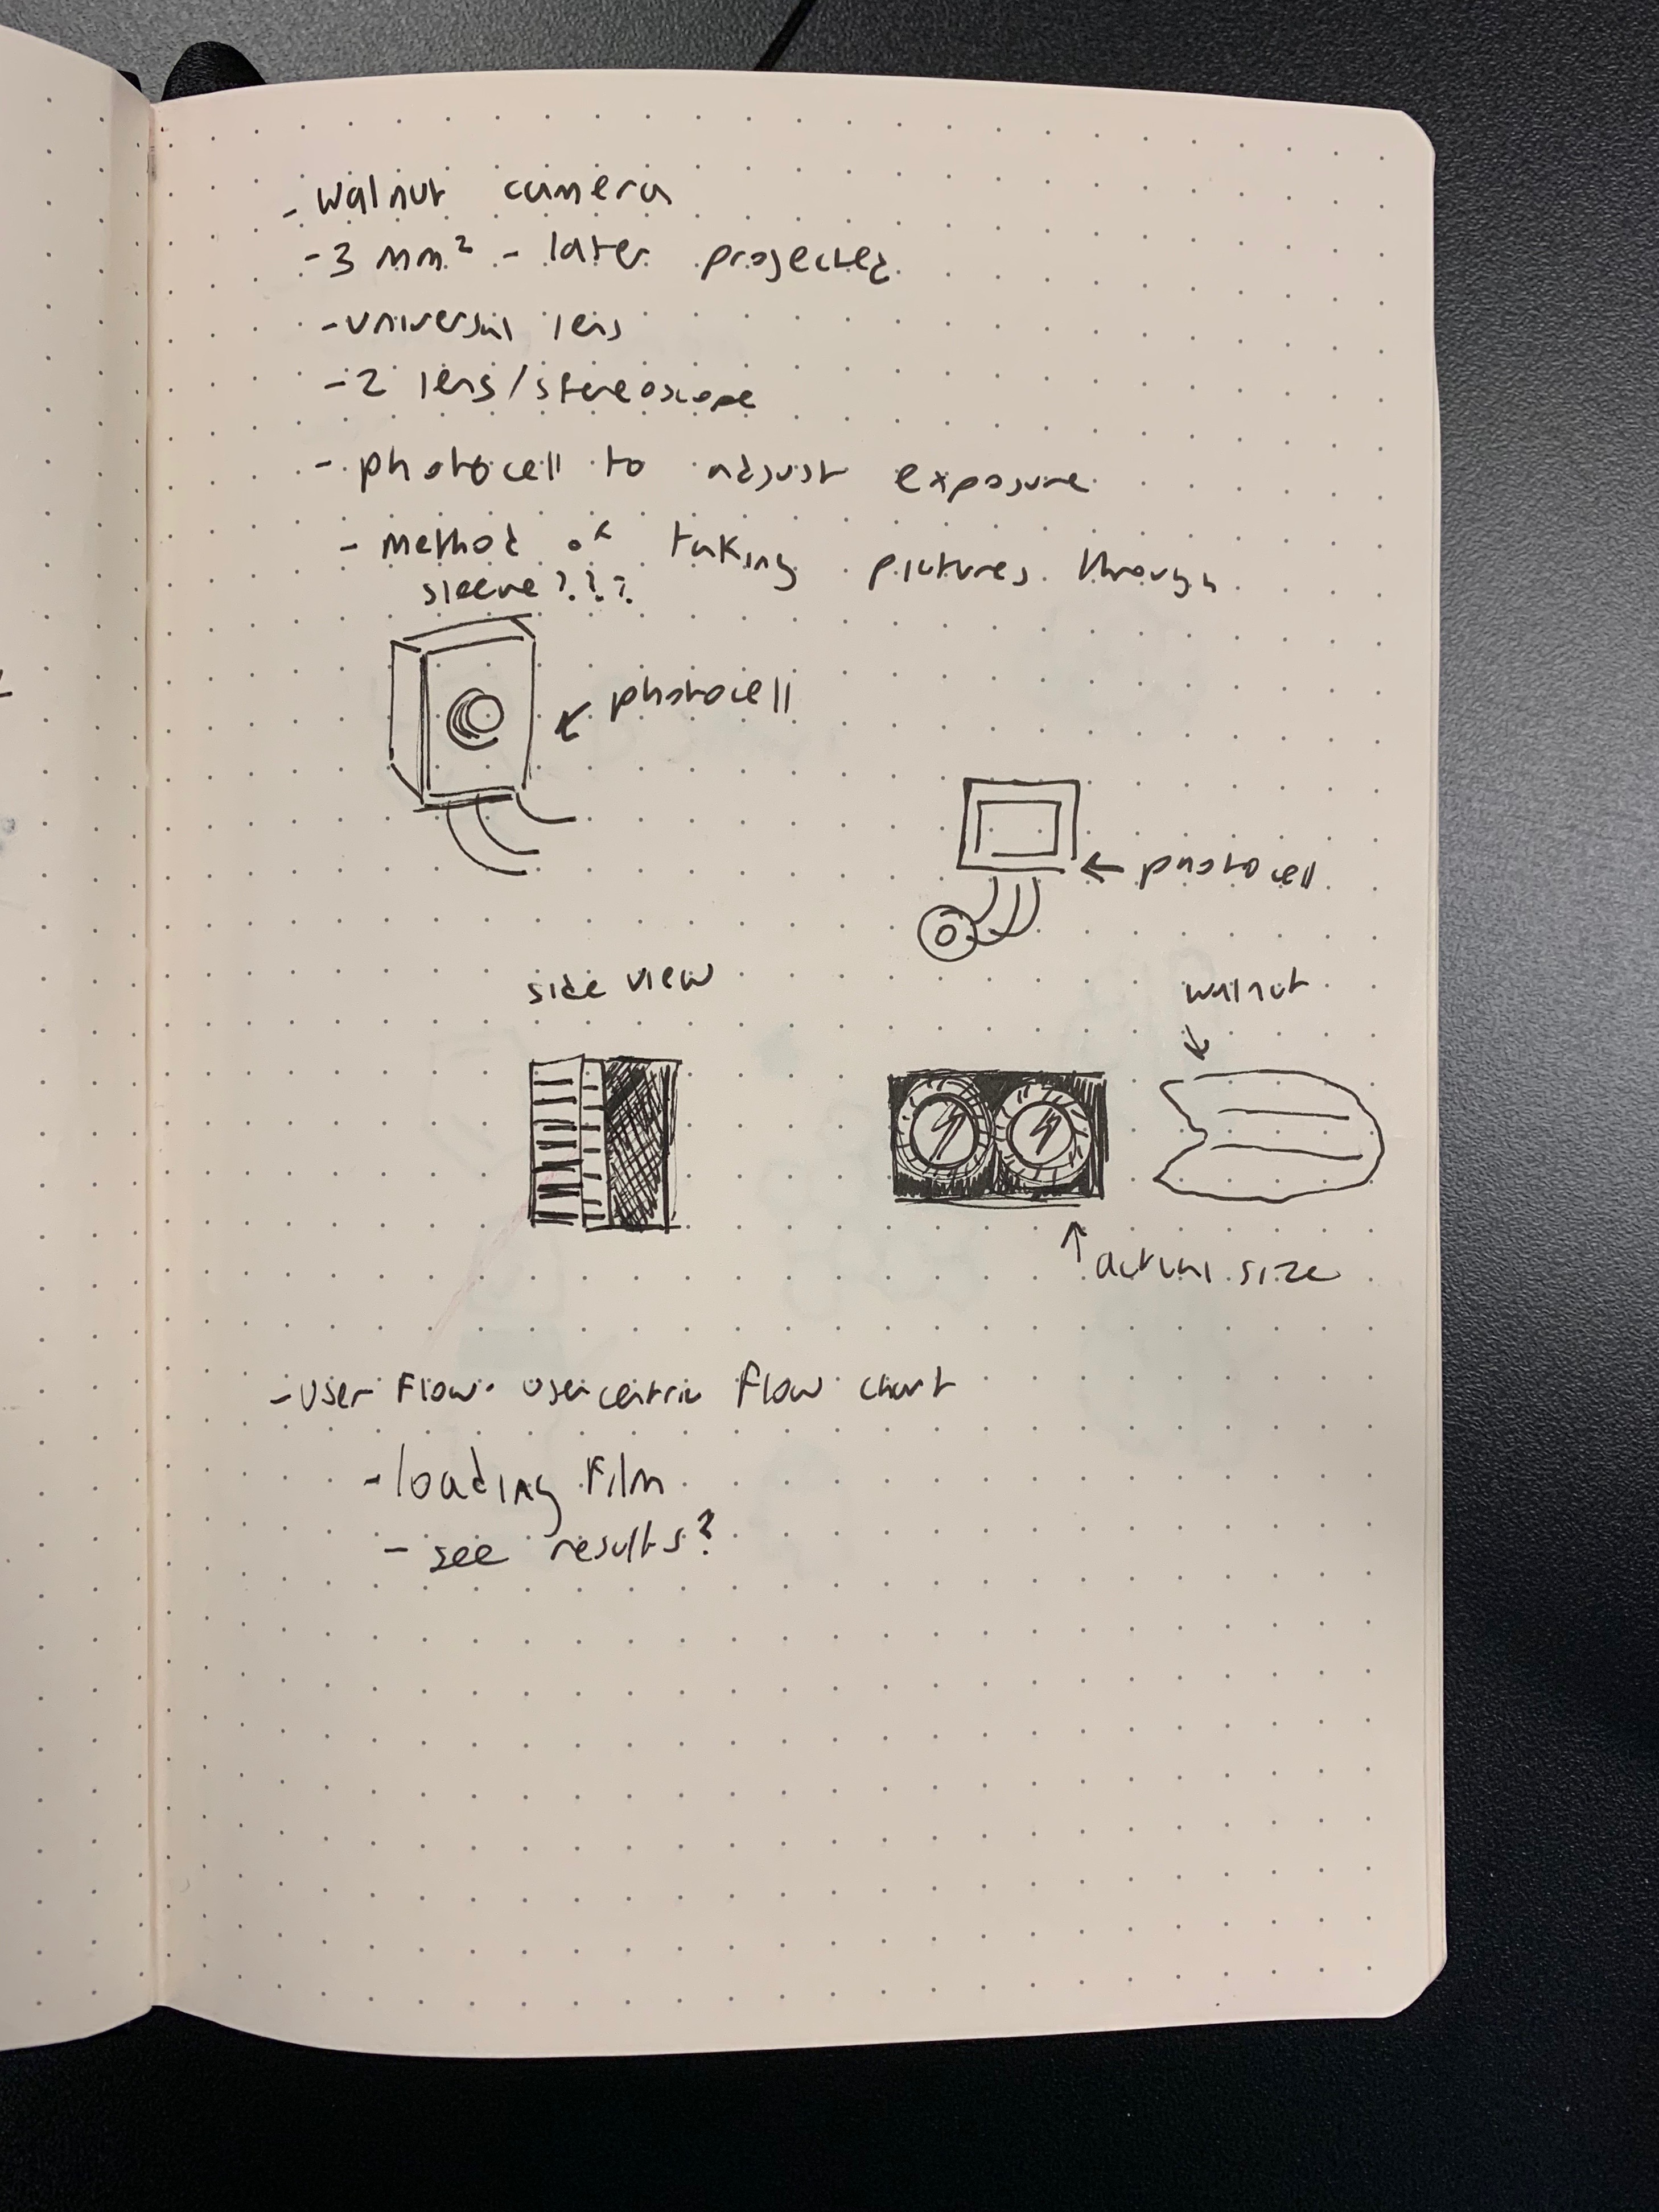 - walnut camera
- 3 mm² - later projected
- universal lens
- 2 lens/stereoscope
- photocell to adjust exposure
- method of taking pictures through
sleeve???
photocell
photocell
side view
walnut
actual size
- user flow. user centric flow chart
- loading film
- see results?